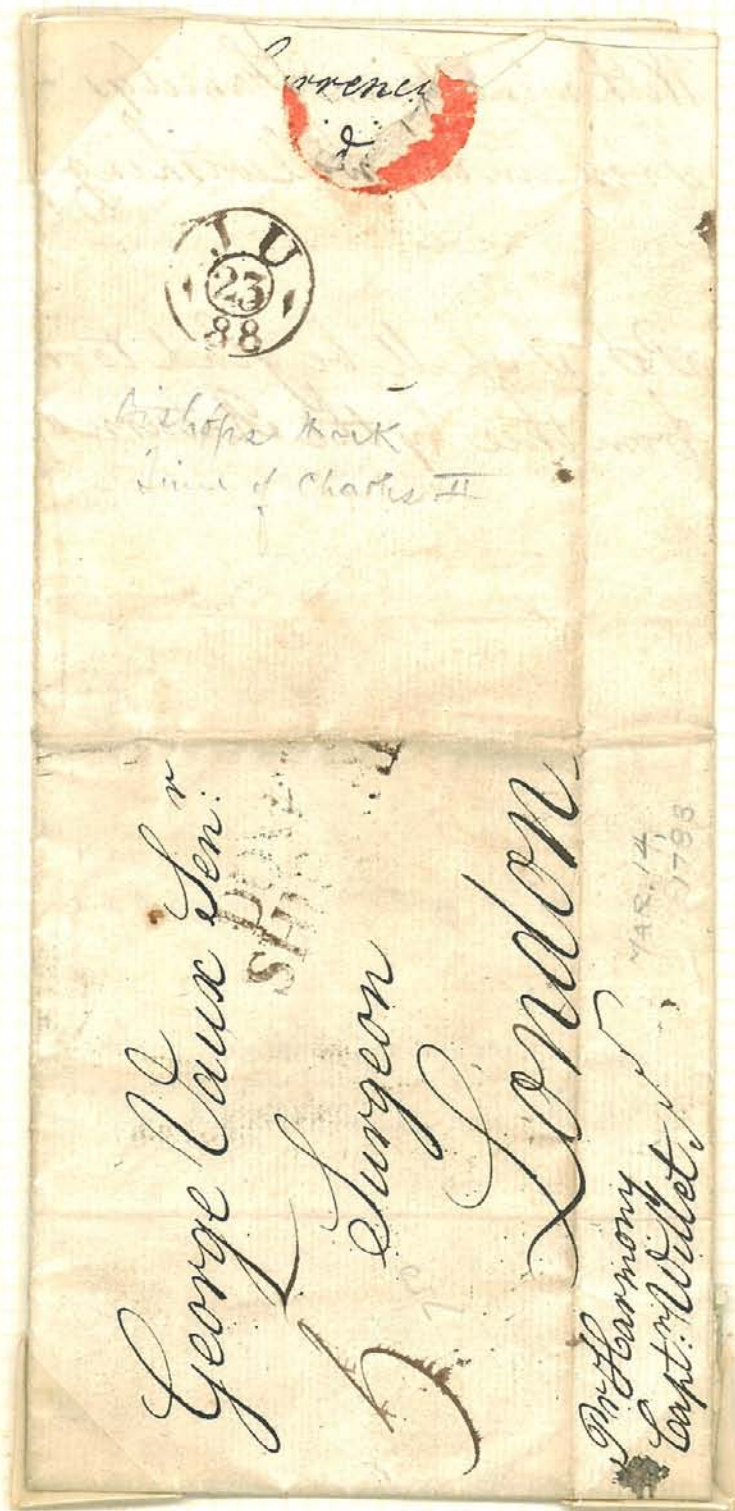 urrency
d
JU
23
88
Bishops Mark
Time of Charles II
George Vaux Senr:
DOVER
SH
Surgeon
London
5
MAR. 14,
1788
Pr Harmony
Capt: Willet